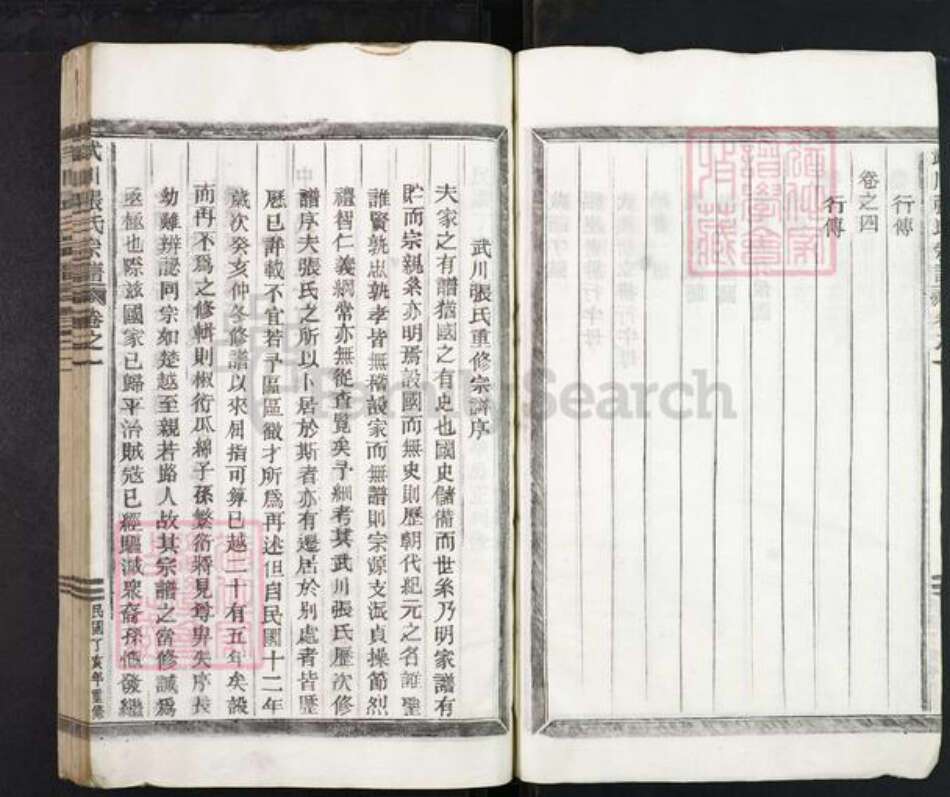 行傳
卷之四
行傳
武川張氏重修宗譜序
夫家之有譜猶國之有史也國史儲備而世系乃明家譜有
貯而宗親桑亦明焉設國而無史則歷朝代紀元之名誰聖
誰賢孰忠孰孝皆無稽設家而無譜則宗源支派貞操節烈
禮智仁義綱常亦無從查覽矣予細考其武川張氏歷次修
譜序夫張氏之所以卜居於斯者亦有遷居於別處者皆歷
歷已詳載不宜若予區區微才所爲再述但自民國十二年
歲次癸亥仲冬修譜以來屈指可算已越二十有五年矣設
而再不爲之修輯則椒衍瓜綿子孫繁衍將見尊卑失序長
幼難辨認同宗如楚越至親若路人故其宗譜之當修誠爲
亟極也際茲國家已歸平治賊寇已經驅滅衆裔孫恆發繼
武川張氏宗譜
卷之一
民國丁亥年重修
FamilySearch